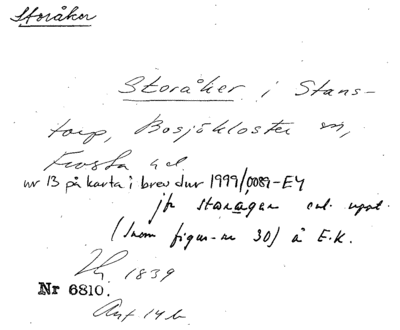 Storåker
Storåker i Stans-
torp, Bosjökloster sn,
Frosta hd
nr 13 på karta i brev dnr 1999/0089-EY
jfr staragar enl. uppt.
(Inom figur-nr 30) å E.K.
1839
Nr 6810.
Avf 14 b